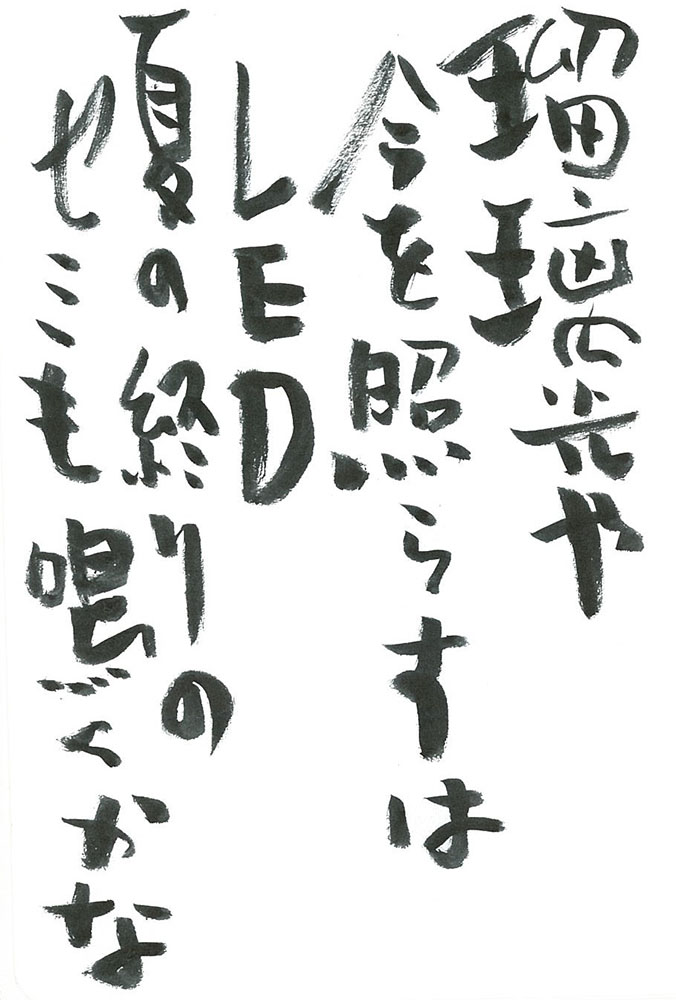 瑠璃の光や
今を照らすは
LED
夏の終りの
セミも鳴くかな